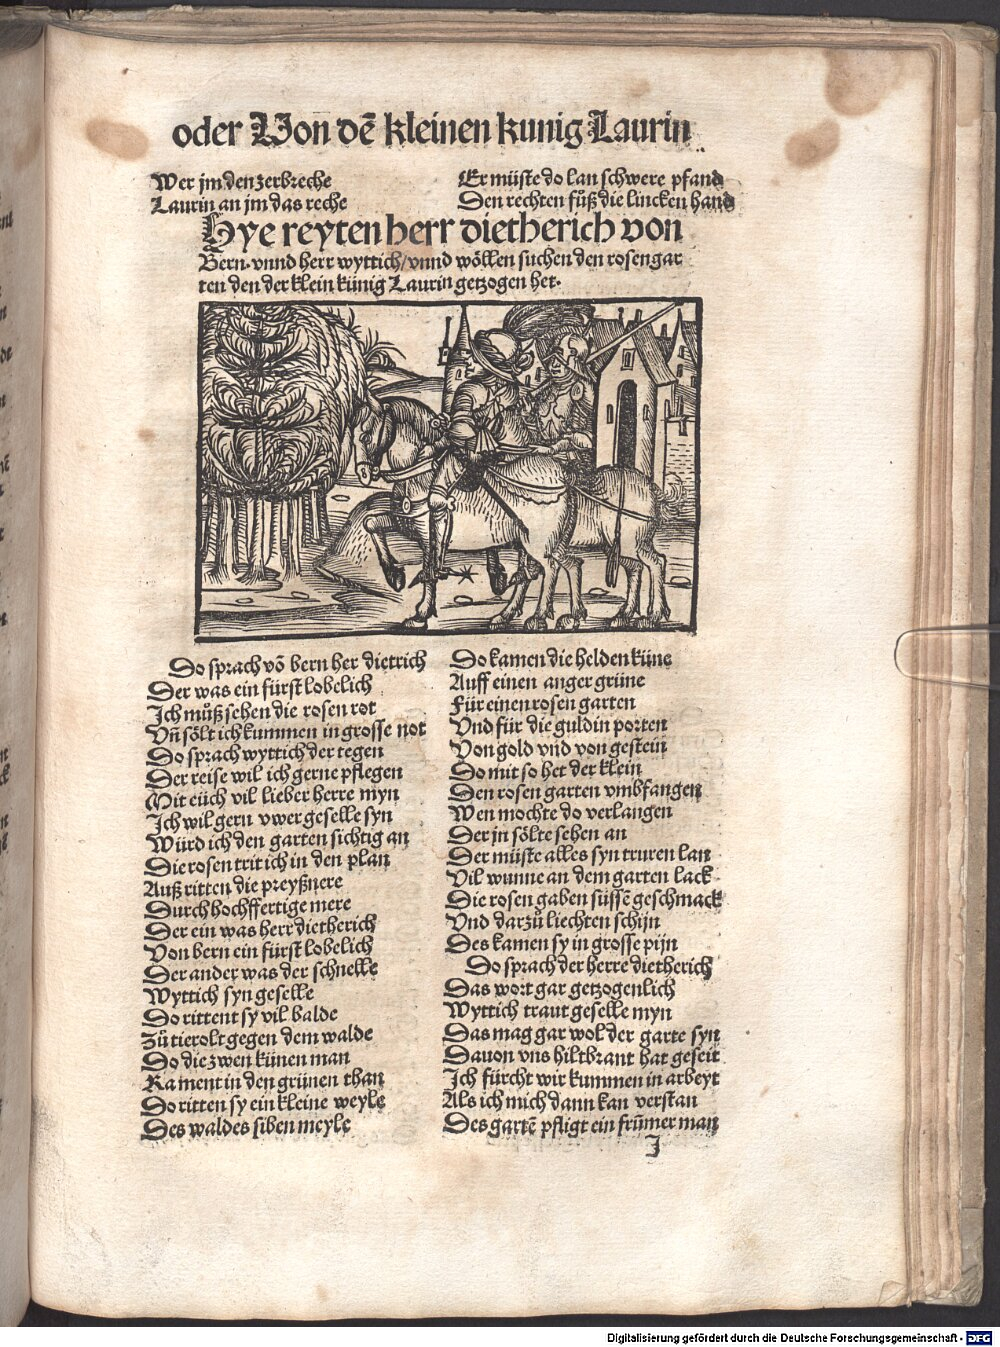 oder Von dē kleinen kunig Laurin
Wer jm den zerbreche
Laurin an jm das reche
Er müste do lan schwere pfand
Den rechten fůß die lincken hand
Hye reyten herr dietherich von
Bern. vnnd herr wyttich/vnnd wöllen suchen den rosengar
ten den der klein künig Laurin getzogen het.
Do sprach vō bern her dietrich
Der was ein fürst lobelich
Ich můß sehen die rosen rot
Vñ sölt ich kummen in grosse not
Do sprach wyttich der tegen
Der reise wil ich gerne pflegen
Mit eüch vil lieber herre myn
Ich wil gern vwer geselle syn
Würd ich den garten sichtig an
Die rosen trit ich in den plan
Auß ritten die preyßnere
Durch hochffertige mere
Der ein was herr dietherich
Von bern ein fürst lobelich
Der ander was der schnelle
Wyttich syn geselle
Do rittent sy vil balde
Zů tierolt gegen dem walde
Do die zwen künen man
Kament in den grünen than
Do ritten sy ein kleine weyle
Des waldes siben meyle
Do kamen die helden küne
Auff einen anger grüne
Für einen rosen garten
Vnd für die guldin porten
Von gold vnd von gestein
Do mit so het der klein
Den rosen garten vmbfangen
Wen mochte do verlangen
Der jn sölte sehen an
Der müste alles syn truren lan
Vil wunne an dem garten lack
Die rosen gaben süssē geschmack
Vnd darzů liechten schijn
Des kamen sy in grosse pijn
Do sprach der herre dietherich
Das wort gar getzogenlich
Wyttich traut geselle myn
Das mag gar wol der garte syn
Dauon vns hiltbrant hat geseit
Ich fürcht wir kummen in arbeyt
Als ich mich dann kan verstan
Des gartē pfligt ein frūmer man
J
Digitalisierung gefördert durch die Deutsche Forschungsgemeinschaft - DFG